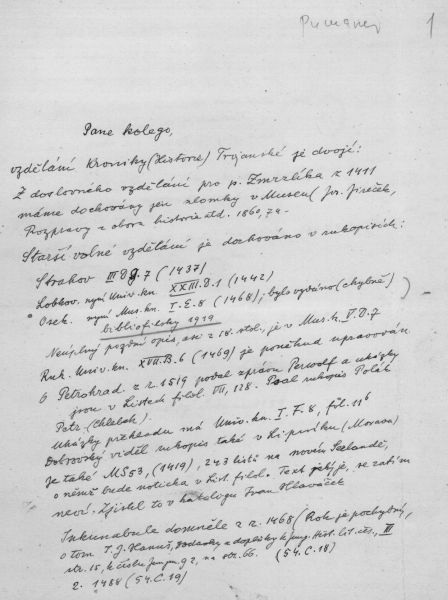 1
Pane kolego,
vzdělání Kroniky (Historie) Trojanské je dvojí:
Z doslovného vzdělání pro p. Zmrzlíka z 1411
máme dochovány jen zlomky v Museu (Jos. Jireček,
Rozpravy z oboru historie atd. 1860, 74.
Starší volné vzdělání je dochováno v rukopisech:
Strahov III D g. 7 (1437)
Lobkov. nyní Univ. kn. XXIII. D. 1 (1442)
Osek. nyní Mus. kn. I. E. 8 (1468); bylo vydáno (chybně)
bibliofilsky 1919
Neúplný pozdní opis, asi z 18. stol., je v Mus. k. V. D. 7
Ruk. Univ. kn. XVII. B. 6 (1469) je poněkud upravován
O Petrohrad. z r. 1519 podal zprávu Perwolf a ukázky
jsou v Listech filol. VII, 128. Psal rukopis Polák
Petr (Chlebah).
Ukázky překladu má Univ. kn. I. F. 8, fol. 116
Dobrovský viděl rukopis také v Lipníku (Morava)
Je také MS 53, (1419), 243 listů na novém Seelandě,
o němž bude notička v List. filol. Text jaký je, se zatím
neví. Zjistel to v katalogu Ivan Hlaváček
Inkunabule domněle z r. 1468 (Rok je pochybný,
o tom I. J. Hanuš, Dodavky a doplňky k Jung. Hist. lit. čes., II
str. 15, k číslu Jungm. 92, na str. 66. (54. C. 18)
2. 1488 (54. C. 19)